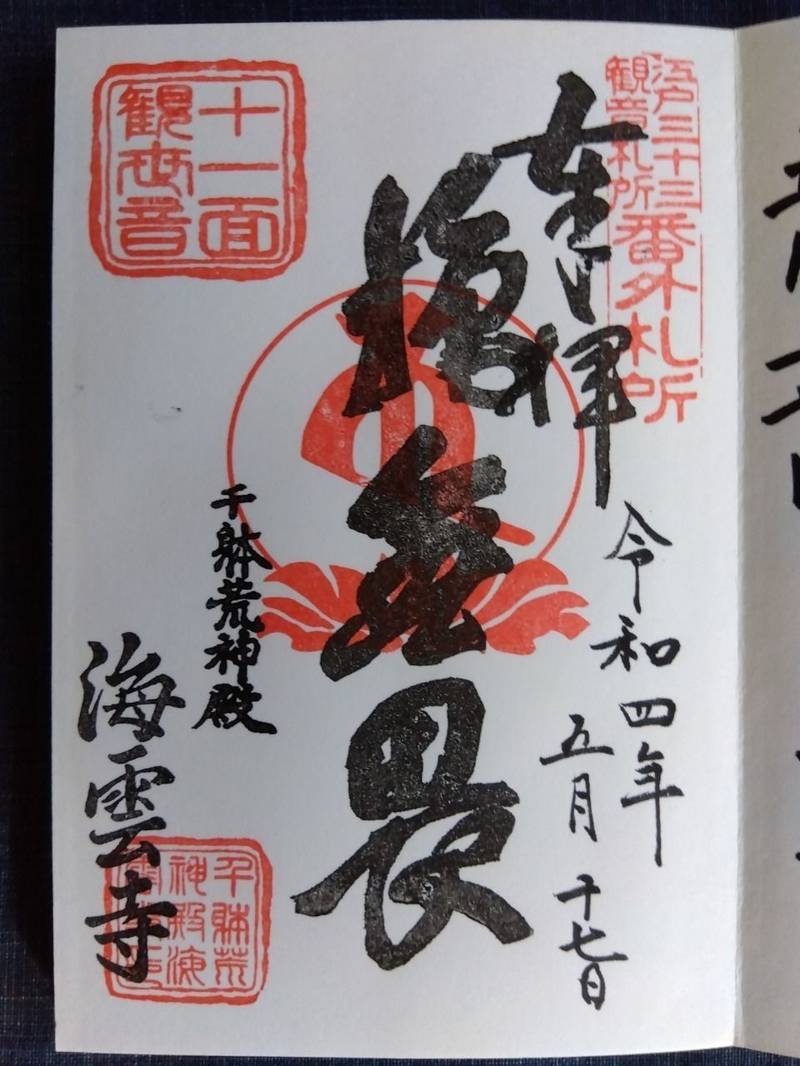 江戸三十三
観音札所
番外札所
奉拝
令和四年
五月十七日
施無畏
十一面
観世音
千躰荒神殿
海雲寺
千躰荒
神殿海